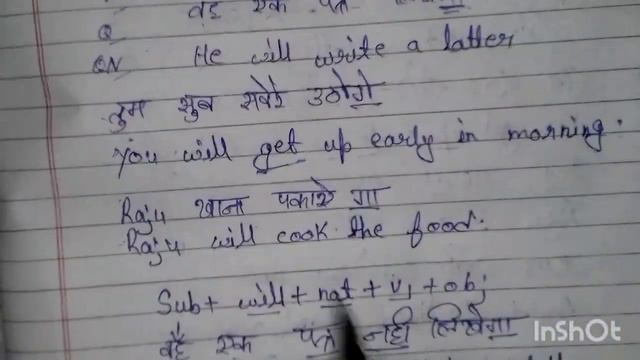 वह एक पत्र
Q
QN He will write a latter
तुम सुब सवेरे उठोगे
You will get up early in morning.
Raju खाना पकाये गा
Raju will cook the food.
Sub + will + not + V1 + obj
वह एक पत्र नही लिखेगा
InShot